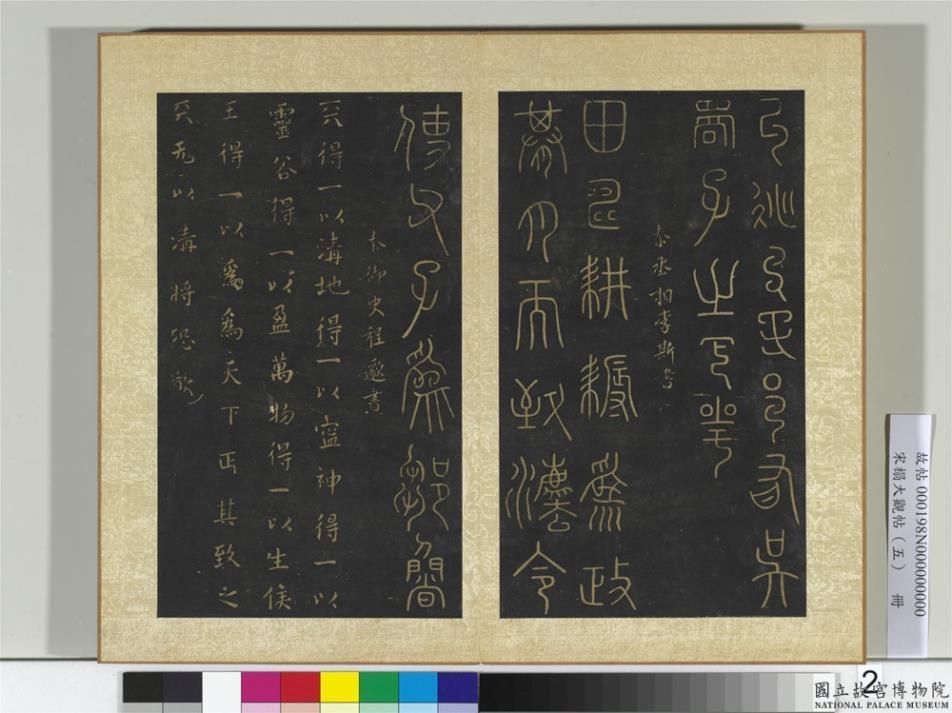 子之
秦丞相李斯書
田耕耨爲政
朞月而致灋令
父子爲
秦御史程邈書
天得一以清地得一以寧神得一以
靈谷得一以盈萬物得一以生侯
王得一以爲爲天下正其致之
天无以清將恐歇
故帖 000198N000000000
宋榻大觀帖（五） 冊
2
國立故宮博物院
NATIONAL PALACE MUSEUM